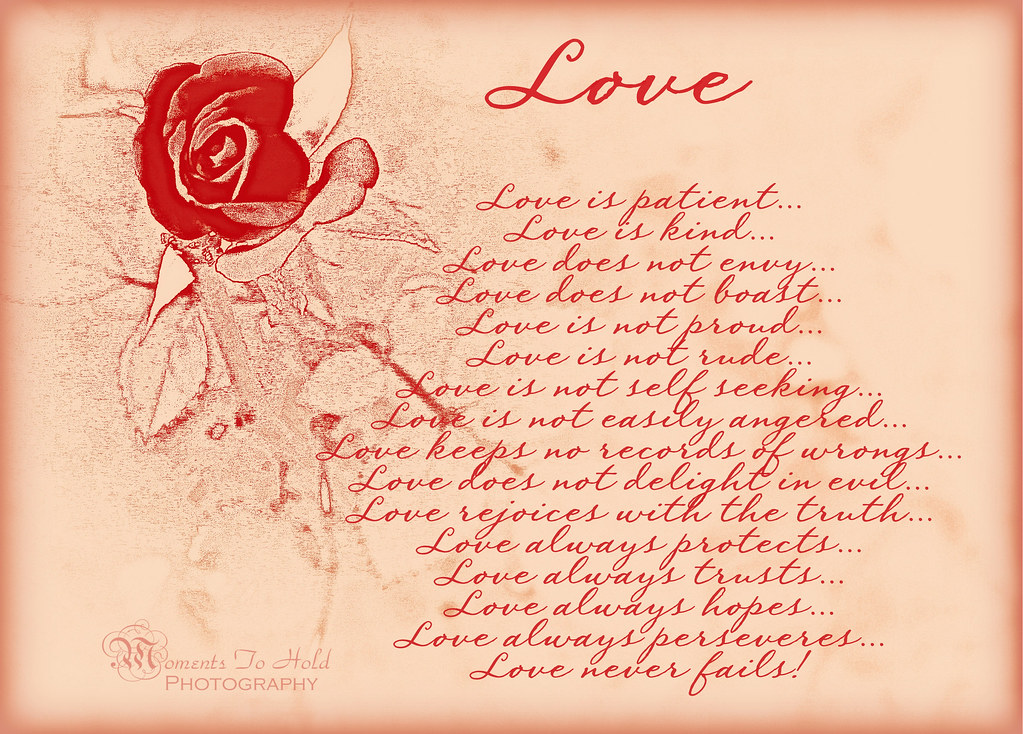 Love
Love is patient...
Love is kind...
Love does not envy...
Love does not boast...
Love is not proud...
Love is not rude...
Love is not self seeking...
Love is not easily angered...
Love keeps no records of wrongs...
Love does not delight in evil...
Love rejoices with the truth...
Love always protects...
Love always trusts...
Love always hopes...
Love always perseveres...
Love never fails!
Moments To Hold
Photography